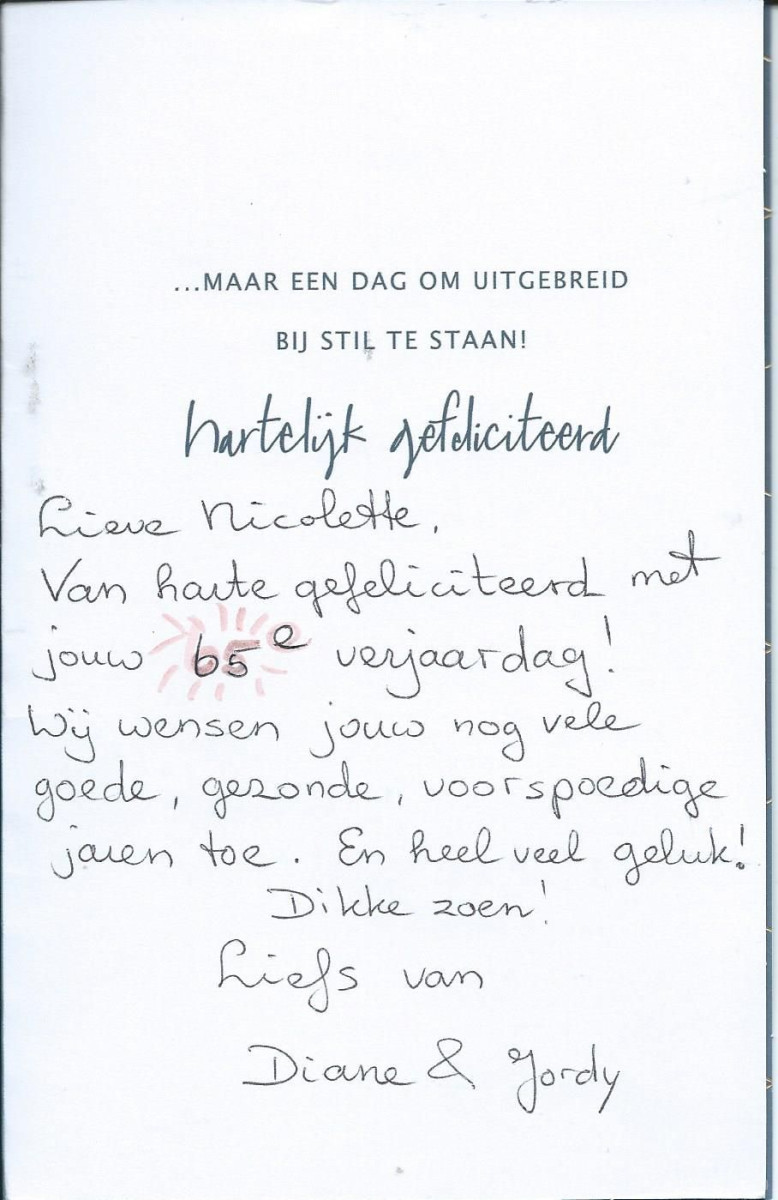 ...MAAR EEN DAG OM UITGEBREID
BIJ STIL TE STAAN!
hartelijk gefeliciteerd
Lieve Nicolette,
Van harte gefeliciteerd met
jouw 65e verjaardag!
Wij wensen jouw nog vele
goede, gezonde, voorspoedige
jaren toe. En heel veel geluk!
Dikke zoen!
Liefs van
Diane & Jordy